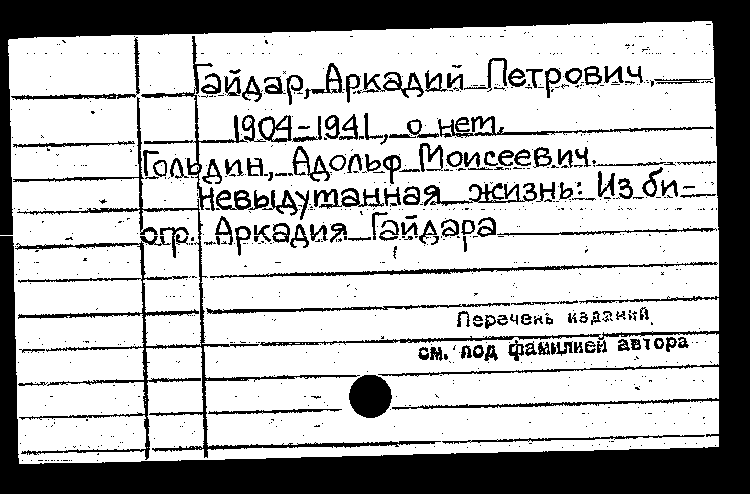 Гайдар, Аркадий Петрович,
1904-1941, о нем.
Гольдин, Адольф Моисеевич.
Невыдуманная жизнь: Из би-
огр. Аркадия Гайдара
Перечень изданий
см. под фамилией автора